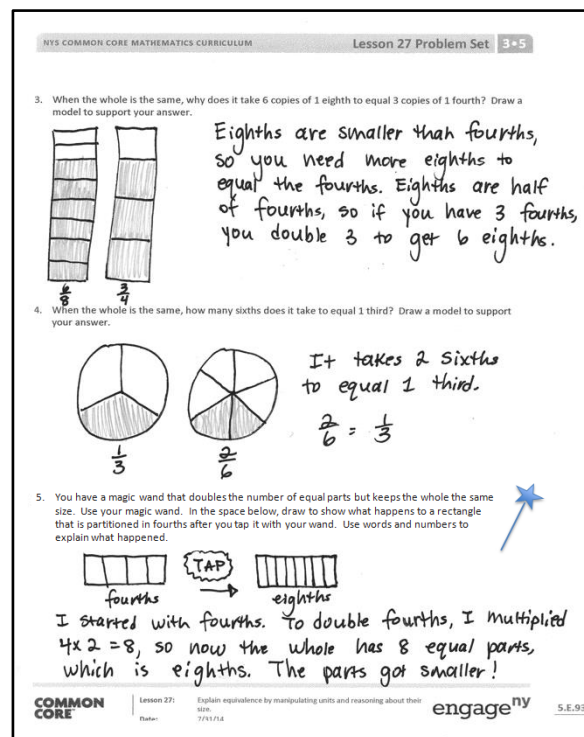 NYS COMMON CORE MATHEMATICS CURRICULUM
Lesson 27 Problem Set 3•5
3. When the whole is the same, why does it take 6 copies of 1 eighth to equal 3 copies of 1 fourth? Draw a
model to support your answer.
Eighths are smaller than fourths,
so you need more eighths to
equal the fourths. Eighths are half
of fourths, so if you have 3 fourths,
you double 3 to get 6 eighths.
6/8
3/4
4. When the whole is the same, how many sixths does it take to equal 1 third? Draw a model to support
your answer.
It takes 2 sixths
to equal 1 third.
2/6 = 1/3
1/3
2/6
5. You have a magic wand that doubles the number of equal parts but keeps the whole the same
size. Use your magic wand. In the space below, draw to show what happens to a rectangle
that is partitioned in fourths after you tap it with your wand. Use words and numbers to
explain what happened.
TAP
fourths
eighths
I started with fourths. To double fourths, I multiplied
4x2=8, so now the whole has 8 equal parts,
which is eighths. The parts got smaller!
COMMON
CORE
Lesson 27:
Explain equivalence by manipulating units and reasoning about their
size.
Date:
7/31/14
engageny
5.E.93